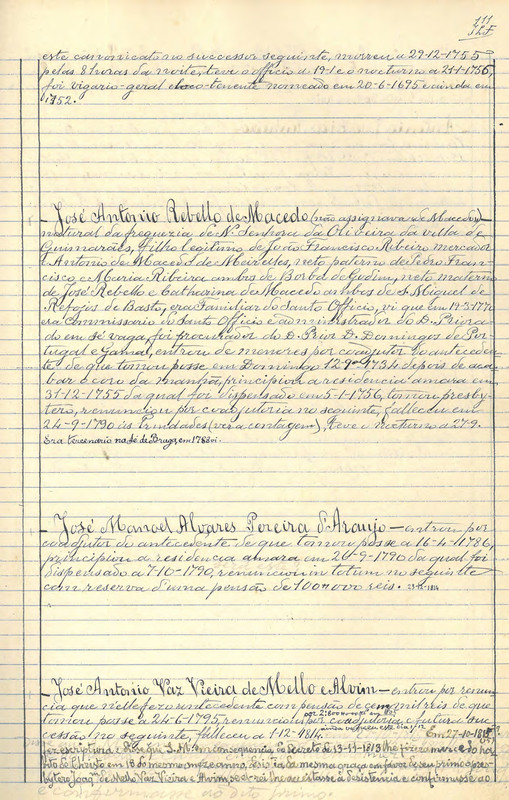 111
este canonicato no successor seguinte, morreu a 29-12-1755
pelas 8 horas da noite, teve o officio a 19-1 e o nocturno a 21-1-1756,
foi vigario-geral loco-tenente nomeado em 20-6-1695 e ainda em
1752.
- José Antonio Rebello de Macedo (não assignava de Macedo) -
natural da freguezia de Nª Senhora da Oliveira da villa de
Guimarães, filho legitimo de João Francisco Ribeiro mercador
e Antonia de Macedo de Meirelles, neto paterno de Pedro Fran-
cisco e Maria Ribeira ambos de Borba de Godim, neto materno
de José Rebello e Catharina de Macedo ambos de S. Miguel de
Refojos de Basto, era Familiar do Santo Officio, vi que em 19-3-1770
era commissario do Santo Officio e administrador do D. Priora-
do em sé vaga, foi procurador do D. Prior D. Domingos de Por-
tugal e Gama, entrou de menores por coadjutor do anteceden-
te de que tomou posse em Domingo 12-9-1734 depois de aca-
bar o coro da manhã, principiou a residencia amara em
31-12-1755 da qual foi dispensado em 5-1-1756, tomou presby-
tero, renunciou por coadjutoria no seguinte, falleceu em
24-9-1790 ás Trindades (vera contagem), teve o nocturno a 27-9.
Era tercenario na Sé de Braga, em 1768 vi.
- José Manoel Alvares Pereira d'Araujo - entrou por
coadjutor do antecedente de que tomou posse a 16-4-1786,
principiou a residencia amara em 26-9-1790 da qual foi
dispensado a 7-10-1790, renunciou in totum no seguinte
com reserva d'uma pensão de 100#000 reis.
- José Antonio Vaz Vieira de Mello e Alvim - entrou por renun-
cia que n'elle fez o antecedente com pensão de cem mil reis de que
tomou posse a 24-6-1795, renunciou por coadjutoria e futura suc-
cessão no seguinte, falleceu a 1-12-1814. Em 27-10-1818
fez escriptura
em consequencia do Decreto de 13-11-1813 lhe fizera mercê do ha-
bito de Christo em 18 do mesmo mez e anno, desistia da mesma graça em favor de seu primo o pres-
bytero Joaqm de Mello Vaz Vieira e Alvim, se el-rei lhe acceitasse a desistencia e confirmasse ao